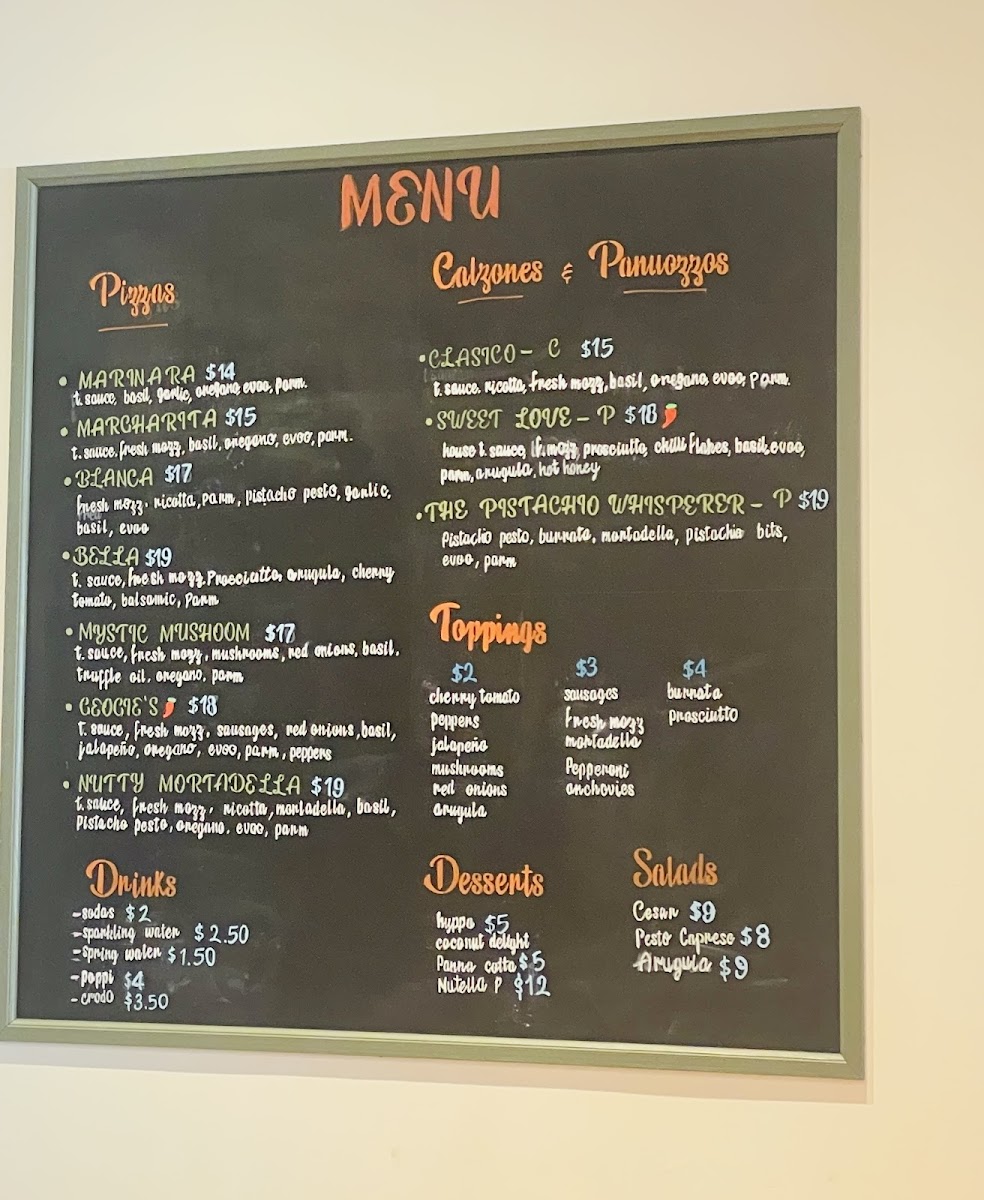 MENU
Pizzas
• MARINARA $14
t. sauce, basil, garlic, oregano, evoo, parm.
• MARGHARITA $15
t. sauce, fresh mozz, basil, oregano, evoo, parm.
• BLANCA $17
fresh mozz, ricotta, parm, pistacho pesto, garlic,
basil, evoo
• BELLA $19
t. sauce, fresh mozz, Prosciutto, arugula, cherry
tomato, balsamic, Parm
• MYSTIC MUSHOOM $17
t. sauce, fresh mozz, mushrooms, red onions, basil,
truffle oil, oregano, parm
• GEOGIE'S 🌶 $18
t. sauce, fresh mozz, sausages, red onions, basil,
jalapeño, oregano, evoo, parm, peppers
• NUTTY MORTADELLA $19
t. sauce, fresh mozz, ricotta, mortadella, basil,
Pistacho pesto, oregano, evoo, parm
Drinks
- sodas $2
- sparkling water $2.50
- spring water $1.50
- poppi $4
- crodo $3.50
Calzones & Panuozzos
• CLASICO - C $15
t. sauce, ricotta, fresh mozz, basil, oregano, evoo, parm.
• SWEET LOVE - P $18 🌶
house t. sauce, f. mozz, prosciutto, chilli flakes, basil, evoo,
parm, arugula, hot honey
• THE PISTACHIO WHISPERER - P $19
Pistachio pesto, burrata, mortadella, pistachio bits,
evoo, parm
Toppings
$2
cherry tomato
peppers
jalapeño
mushrooms
red onions
arugula
$3
sausages
fresh mozz
mortadella
Pepperoni
anchovies
$4
burrata
prosciutto
Desserts
$5
coconut delight
Panna cotta $5
Nutella P $12
Salads
Cesar $9
Pesto Caprese $8
Arugula $9